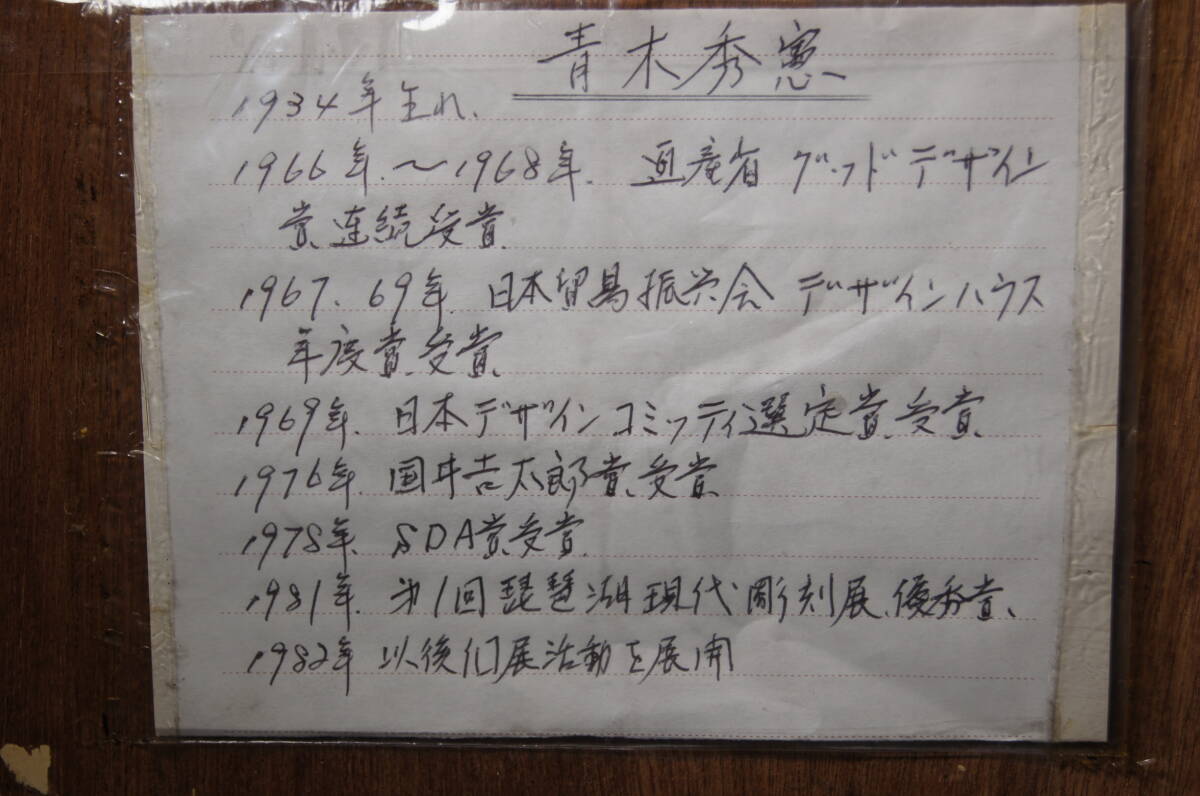 青木秀憲
1934年生れ、
1966年、〜1968年、通産省 グッドデザイン
賞、連続受賞、
1967、69年、日本貿易振興会 デザインハウス
年度賞、受賞、
1969年、日本デザインコミッティ選定賞、受賞、
1976年、国井吉太郎賞、受賞、
1978年、SDA賞、受賞、
1981年、第1回琵琶湖現代彫刻展、優秀賞、
1982年 以後個展活動を展開